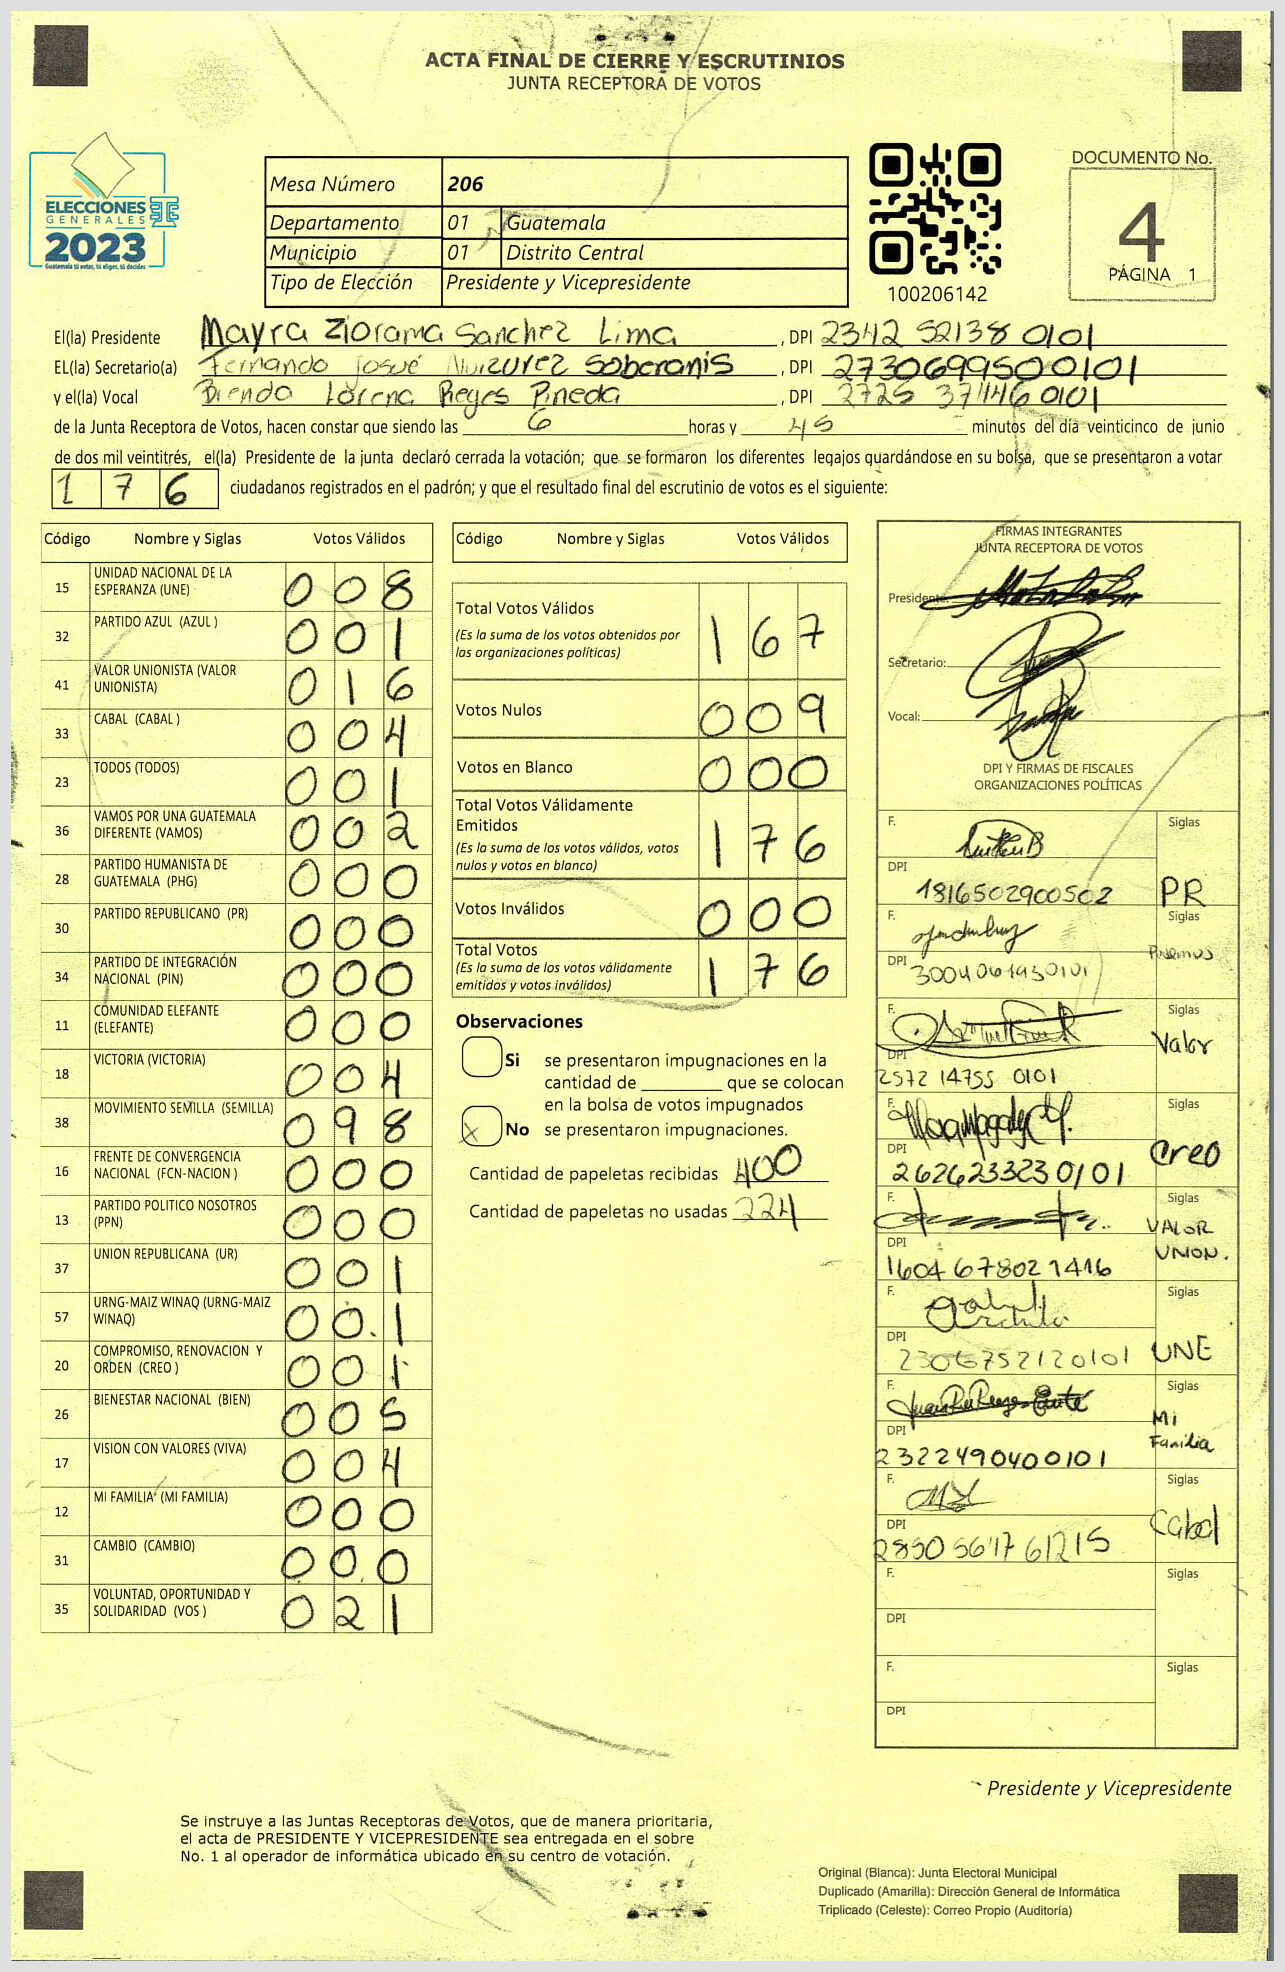 ACTA FINAL DE CIERRE Y ESCRUTINIOS
JUNTA RECEPTORA DE VOTOS
ELECCIONES
GENERALES
2023
Guatemala tú votas, tú eliges, tú decides
Mesa Número 206
Departamento 01 Guatemala
Municipio 01 Distrito Central
Tipo de Elección Presidente y Vicepresidente
100206142
DOCUMENTO No.
4
PÁGINA 1
El(la) Presidente Mayra Ziorama Sanchez Lima, DPI 2342 52138 0101
EL(la) Secretario(a) Fernando Josué Soberanis, DPI 2730699500101
y el(la) Vocal Brenda Lorena Reyes Pineda, DPI 2725 37446 0101
de la Junta Receptora de Votos, hacen constar que siendo las 6 horas y 45 minutos del día veinticinco de junio
de dos mil veintitrés, el(la) Presidente de la junta declaró cerrada la votación; que se formaron los diferentes legajos guardándose en su bolsa, que se presentaron a votar
1 7 6 ciudadanos registrados en el padrón; y que el resultado final del escrutinio de votos es el siguiente:
Código Nombre y Siglas Votos Válidos
15 UNIDAD NACIONAL DE LA ESPERANZA (UNE) 0 0 8
32 PARTIDO AZUL (AZUL ) 0 0 1
41 VALOR UNIONISTA (VALOR UNIONISTA) 0 1 6
33 CABAL (CABAL ) 0 0 4
23 TODOS (TODOS) 0 0 1
36 VAMOS POR UNA GUATEMALA DIFERENTE (VAMOS) 0 0 2
28 PARTIDO HUMANISTA DE GUATEMALA (PHG) 0 0 0
30 PARTIDO REPUBLICANO (PR) 0 0 0
34 PARTIDO DE INTEGRACIÓN NACIONAL (PIN) 0 0 0
11 COMUNIDAD ELEFANTE (ELEFANTE) 0 0 0
18 VICTORIA (VICTORIA) 0 0 4
38 MOVIMIENTO SEMILLA (SEMILLA) 0 9 8
16 FRENTE DE CONVERGENCIA NACIONAL (FCN-NACION ) 0 0 0
13 PARTIDO POLITICO NOSOTROS (PPN) 0 0 0
37 UNION REPUBLICANA (UR) 0 0 1
57 URNG-MAIZ WINAQ (URNG-MAIZ WINAQ) 0 0 1
20 COMPROMISO, RENOVACION Y ORDEN (CREO ) 0 0 1
26 BIENESTAR NACIONAL (BIEN) 0 0 5
17 VISION CON VALORES (VIVA) 0 0 4
12 MI FAMILIA (MI FAMILIA) 0 0 0
31 CAMBIO (CAMBIO) 0 0 0
35 VOLUNTAD, OPORTUNIDAD Y SOLIDARIDAD (VOS ) 0 2 1
Código Nombre y Siglas Votos Válidos
Total Votos Válidos 1 6 7
(Es la suma de los votos obtenidos por
las organizaciones políticas)
Votos Nulos 0 0 9
Votos en Blanco 0 0 0
Total Votos Válidamente
Emitidos 1 7 6
(Es la suma de los votos válidos, votos
nulos y votos en blanco)
Votos Inválidos 0 0 0
Total Votos 1 7 6
(Es la suma de los votos válidamente
emitidos y votos inválidos)
Observaciones
Si se presentaron impugnaciones en la
cantidad de ________ que se colocan
en la bolsa de votos impugnados
X No se presentaron impugnaciones.
Cantidad de papeletas recibidas 400
Cantidad de papeletas no usadas 224
FIRMAS INTEGRANTES
JUNTA RECEPTORA DE VOTOS
Presidente:
Secretario:
Vocal:
DPI Y FIRMAS DE FISCALES
ORGANIZACIONES POLÍTICAS
F. Siglas
DPI 1816502900502 PR
F. Siglas
DPI 3004061930101
F. Siglas
DPI 2572 14755 0101 Valor
F. Siglas
DPI 2626233230101 Creo
F. Siglas
DPI 1604678021416 VALOR UNION.
F. Siglas
DPI 2306752120101 UNE
F. Siglas
DPI 2322490400101 Mi Familia
F. Siglas
DPI 2850 5617 61215 Cabal
F. Siglas
DPI
F. Siglas
DPI
Presidente y Vicepresidente
Se instruye a las Juntas Receptoras de Votos, que de manera prioritaria,
el acta de PRESIDENTE Y VICEPRESIDENTE sea entregada en el sobre
No. 1 al operador de informática ubicado en su centro de votación.
Original (Blanca): Junta Electoral Municipal
Duplicado (Amarilla): Dirección General de Informática
Triplicado (Celeste): Correo Propio (Auditoría)